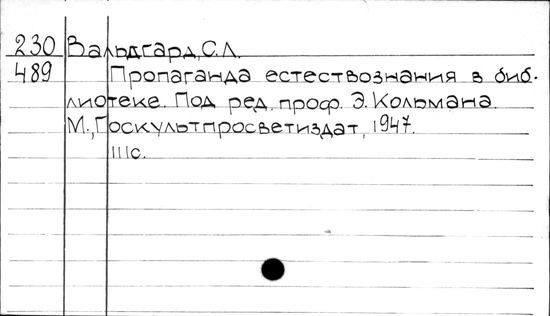 230 Вальдгард, С.Л.
489 Пропаганда естествознания в биб-
лиотеке. Под ред. проф. Э. Кольмана.
М., Госкультпросветиздат, 1947.
111с.